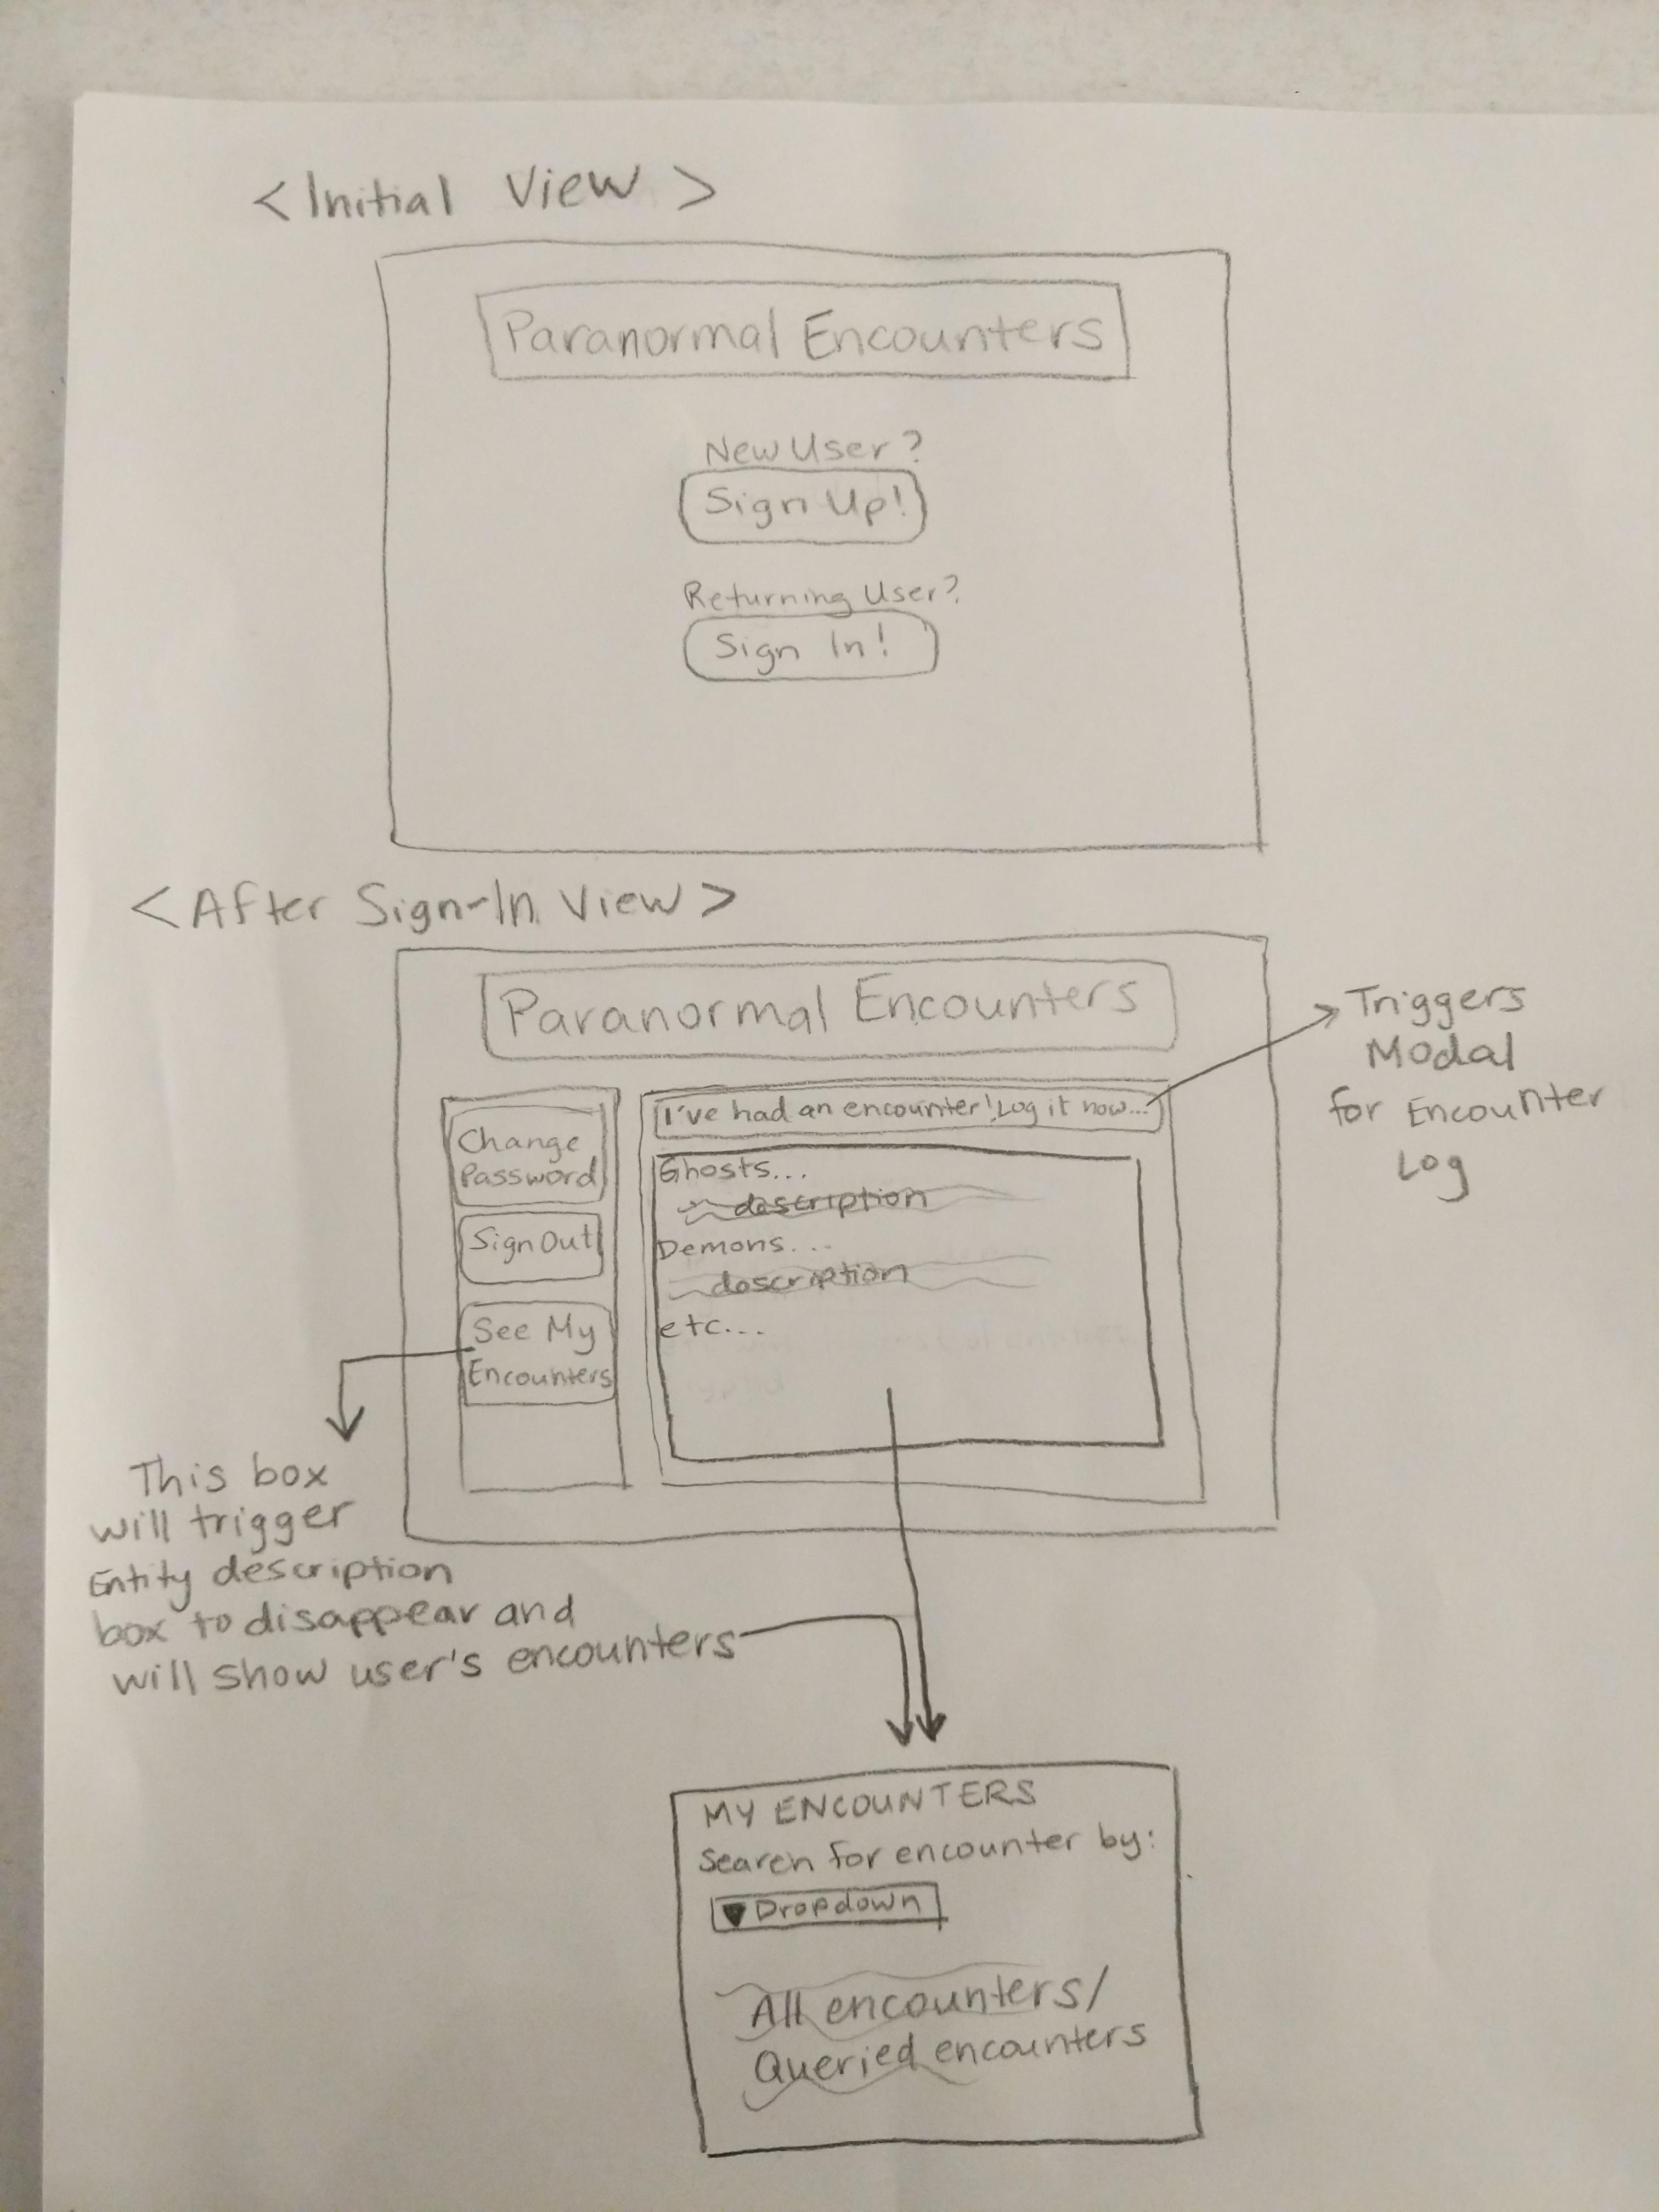 <Initial View>
Paranormal Encounters
New User?
Sign Up!
Returning User?
Sign In!
<After Sign-In View>
Paranormal Encounters
Change
Password
Sign Out
See My
Encounters
I've had an encounter! Log it now...
Ghosts...
description
Demons...
description
etc...
Triggers
Modal
for Encounter
Log
This box
will trigger
Entity description
box to disappear and
will show user's encounters
MY ENCOUNTERS
Search for encounter by:
▼Dropdown
All encounters/
Queried encounters